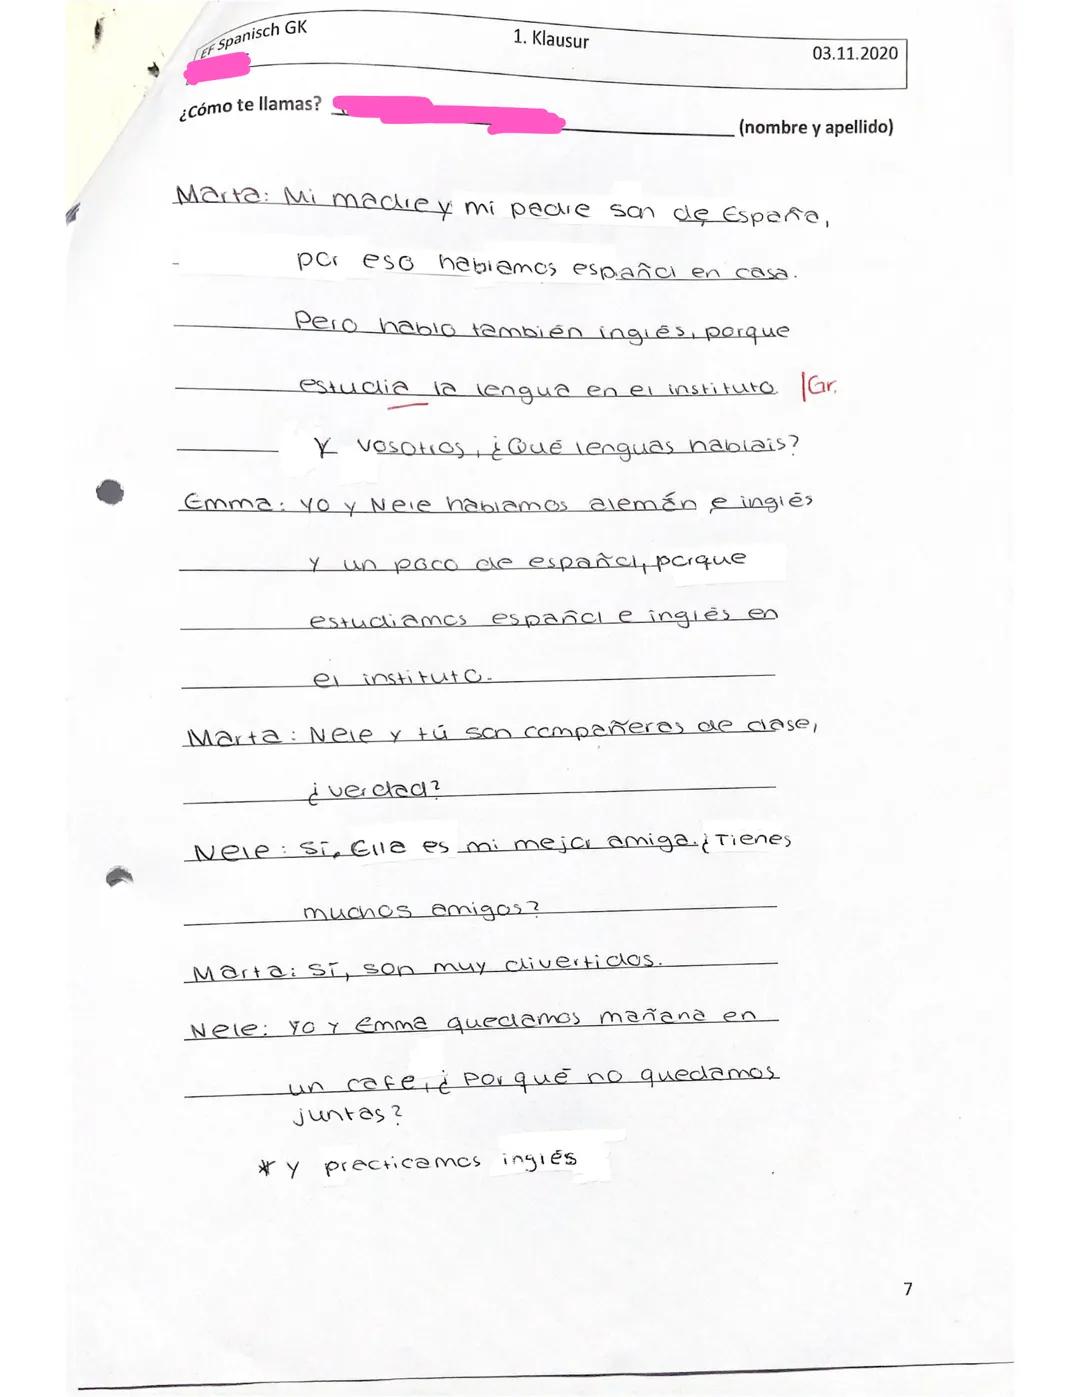 EF Spanisch GK 1. Klausur 03.11.2020
¿Cómo te llamas? (nombre y apellido)
Marta: Mi madre y mi padre son de España,
por eso hablamos español en casa.
Pero hablo también inglés, porque
estudia la lengua en el instituto. |Gr.
Y vosotros, ¿Qué lenguas habláis?
Emma: Yo y Nele hablamos alemán e inglés
y un poco de español, porque
estudiamos español e inglés en
el instituto.
Marta: Nele y tú son compañeras de clase,
¿verdad?
Nele: Sí, Ella es mi mejor amiga. ¿Tienes
muchos amigos?
Marta: Sí, son muy divertidos.
Nele: Yo y Emma quedamos mañana en
un cafe, ¿Por qué no quedamos
juntas?
* y practicamos inglés
7